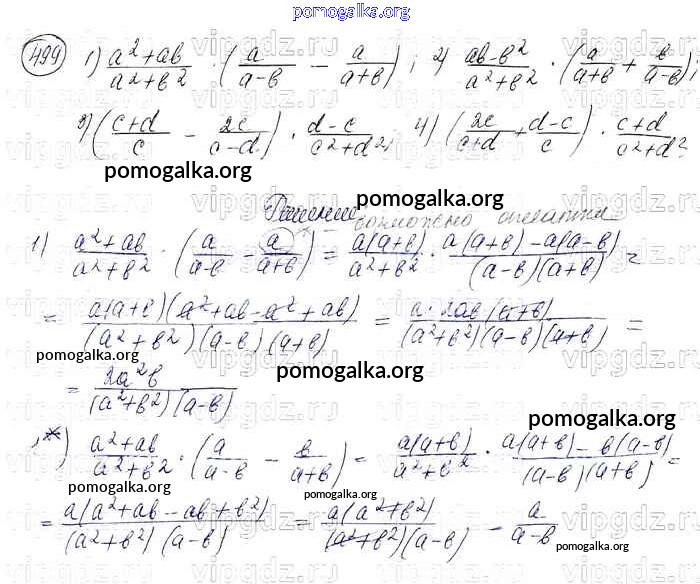 pomogalka.org
499 1) (a²+ab)/(a²+b²) · (a/(a-b) - a/(a+b)); 2) (ab-b²)/(a²+b²) · (a/(a+b) + b/(a-b));
3) ((c+d)/c - 2c/(c-d)) · (d-c)/(c²+d²); 4) (2c/(c+d) + (d-c)/c) · (c+d)/(c²+d²)
pomogalka.org pomogalka.org
Решение возможно опечатка
1) (a²+ab)/(a²+b²) · (a/(a-b) - a/(a+b)) = a(a+b)/(a²+b²) · (a(a+b)-a(a-b))/((a-b)(a+b)) =
= a(a+b)(a²+ab-a²+ab)/((a²+b²)(a-b)(a+b)) = a·2ab(a+b)/((a²+b²)(a-b)(a+b)) =
pomogalka.org pomogalka.org
= 2a²b/((a²+b²)(a-b))
pomogalka.org
*) (a²+ab)/(a²+b²) · (a/(a-b) - b/(a+b)) = a(a+b)/(a²+b²) · (a(a+b)-b(a-b))/((a-b)(a+b)) =
pomogalka.org pomogalka.org
= a(a²+ab-ab+b²)/((a²+b²)(a-b)) = a(a²+b²)/((a²+b²)(a-b)) - a/(a-b)
pomogalka.org pomogalka.org
vipgdz.ru